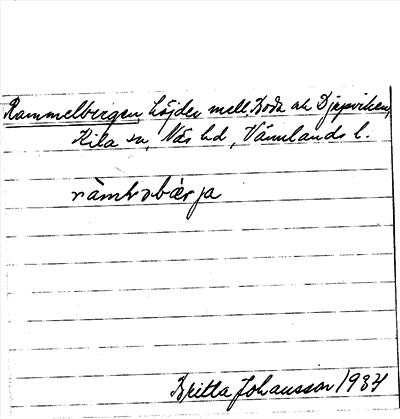 Rammelbergen, höjder mell. Boda ah Djupviken,
Kila sn, Näs hd, Värmlands l.
Britta Johansson 1934